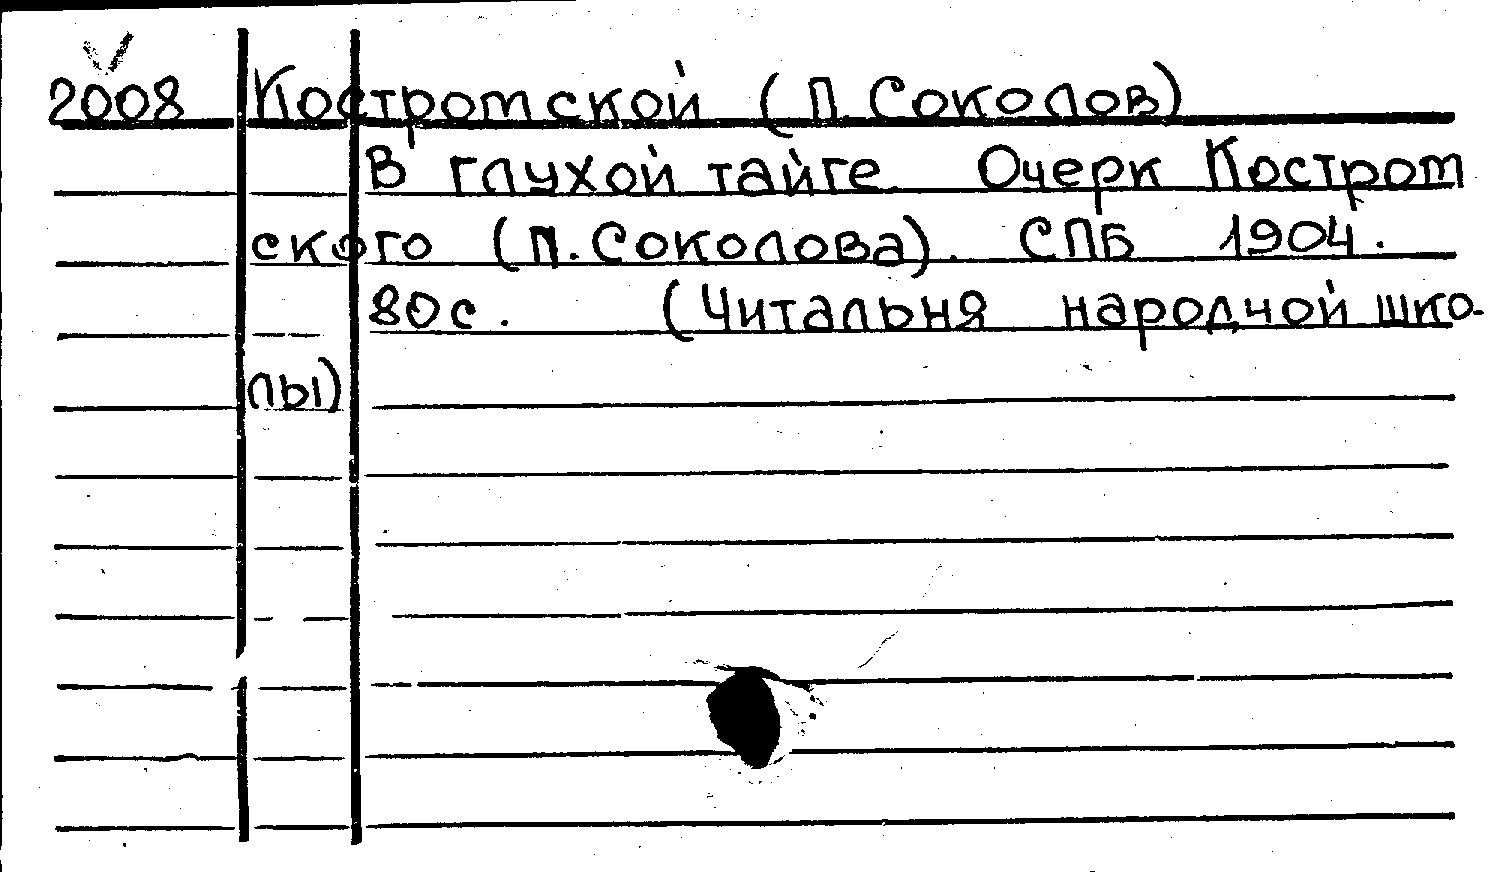 2008 Костромской (П. Соколов)
В глухой тайге. Очерк Костром
ского (П. Соколова). СПБ 1904.
80с. (Читальня народной шко-
лы)